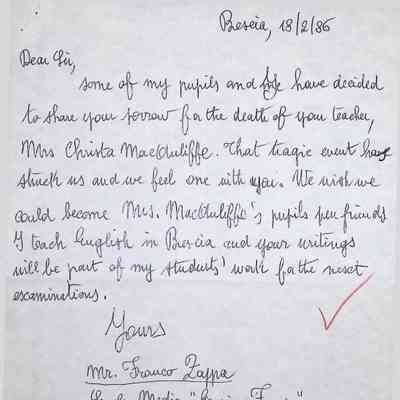 Brescia, 18/2/86
Dear Sir,
some of my pupils and have decided
to share your sorrow for the death of your teacher,
Mrs Christa MacAuliffe. That tragic event have
struck us and we feel one with you. We wish we
could become Mrs. MacAuliffe's pupils pen friends
I teach English in Brescia and your writings
will be part of my students' work for the next
examinations.
Yours
Mr. Franco Zappa